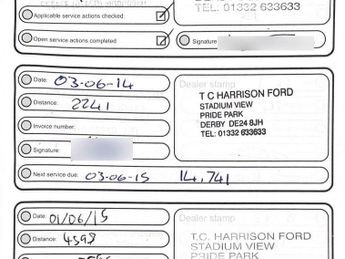 TEL: 01332 633633
Applicable service actions checked
Open service actions completed
Signature
Date: 03-06-14
Distance: 2241
Invoice number:
Signature:
Next service due: 03-06-15 14,741
Dealer stamp
T C HARRISON FORD
STADIUM VIEW
PRIDE PARK
DERBY DE24 8JH
TEL: 01332 633633
Date: 01/06/15
Distance: 4398
Dealer stamp
T.C. HARRISON FORD
STADIUM VIEW
PRIDE PARK